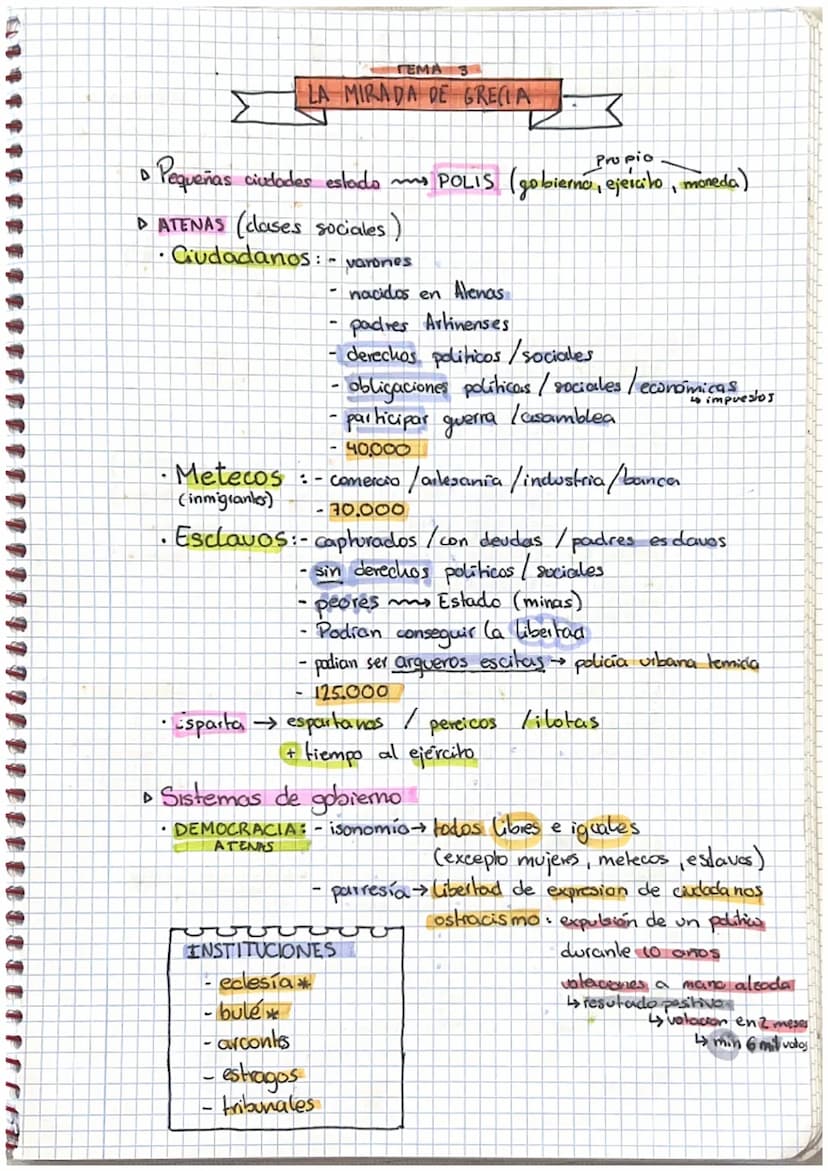 TEMA 3
LA MIRADA DE GRECIA
propio
▷ Pequeñas ciudades estado ⟿ POLIS (gobierno, ejército, moneda)
▷ ATENAS (clases sociales)
· Ciudadanos: - varones
- nacidos en Atenas
- padres Artinenses
- derechos políticos / sociales
- obligaciones políticas / sociales / económicas
↳ impuestos
- participar guerra / asamblea
- 40.000
· Metecos : - comercio / artesanía / industria / banca
(inmigrantes)
- 70.000
· Esclavos: - capturados / con deudas / padres esclavos
- sin derechos políticos / sociales
- peores ⟿ Estado (minas)
- Podían conseguir la libertad
- podian ser arqueros escitas → policía urbana temida
- 125.000
· Esparta → espartanos / pereicos / ilotas
+ tiempo al ejército
▷ Sistemas de gobierno
· DEMOCRACIA: - isonomío → todos libres e iguales
ATENAS
(excepto mujeres, metecos, eslavos)
- parresía → libertad de expresion de ciudadanos
ostracismo: expulsión de un político
durante 10 años
votaciones a mano alzada
↳ resultado positivo
↳ votacion en 2 meses
↳ min 6 mil votos
INSTITUCIONES
- eclesía *
- bulé *
- arcontes
- estragos
- tribunales